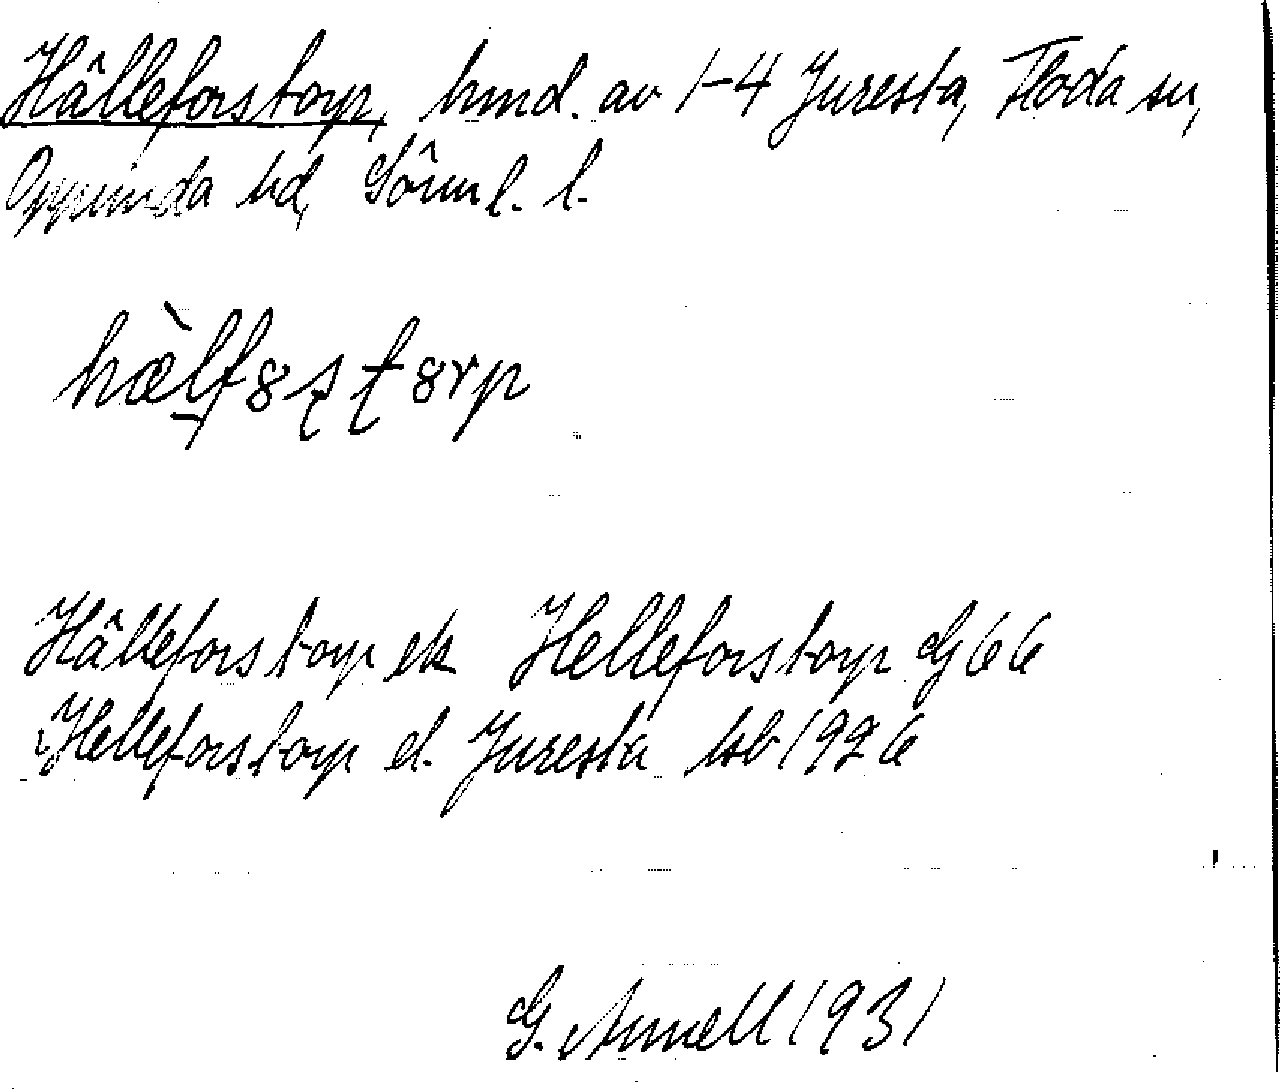 Hälleforstorp, hmd. av 1-4 Juresta, Floda sn,
Oppunda hd, Södm l. l.
hælf8st8rp
Hälleforstorp ek Helleforstorp G66
Helleforstorp el. Juresta lsb 1926
G. Annell 1931